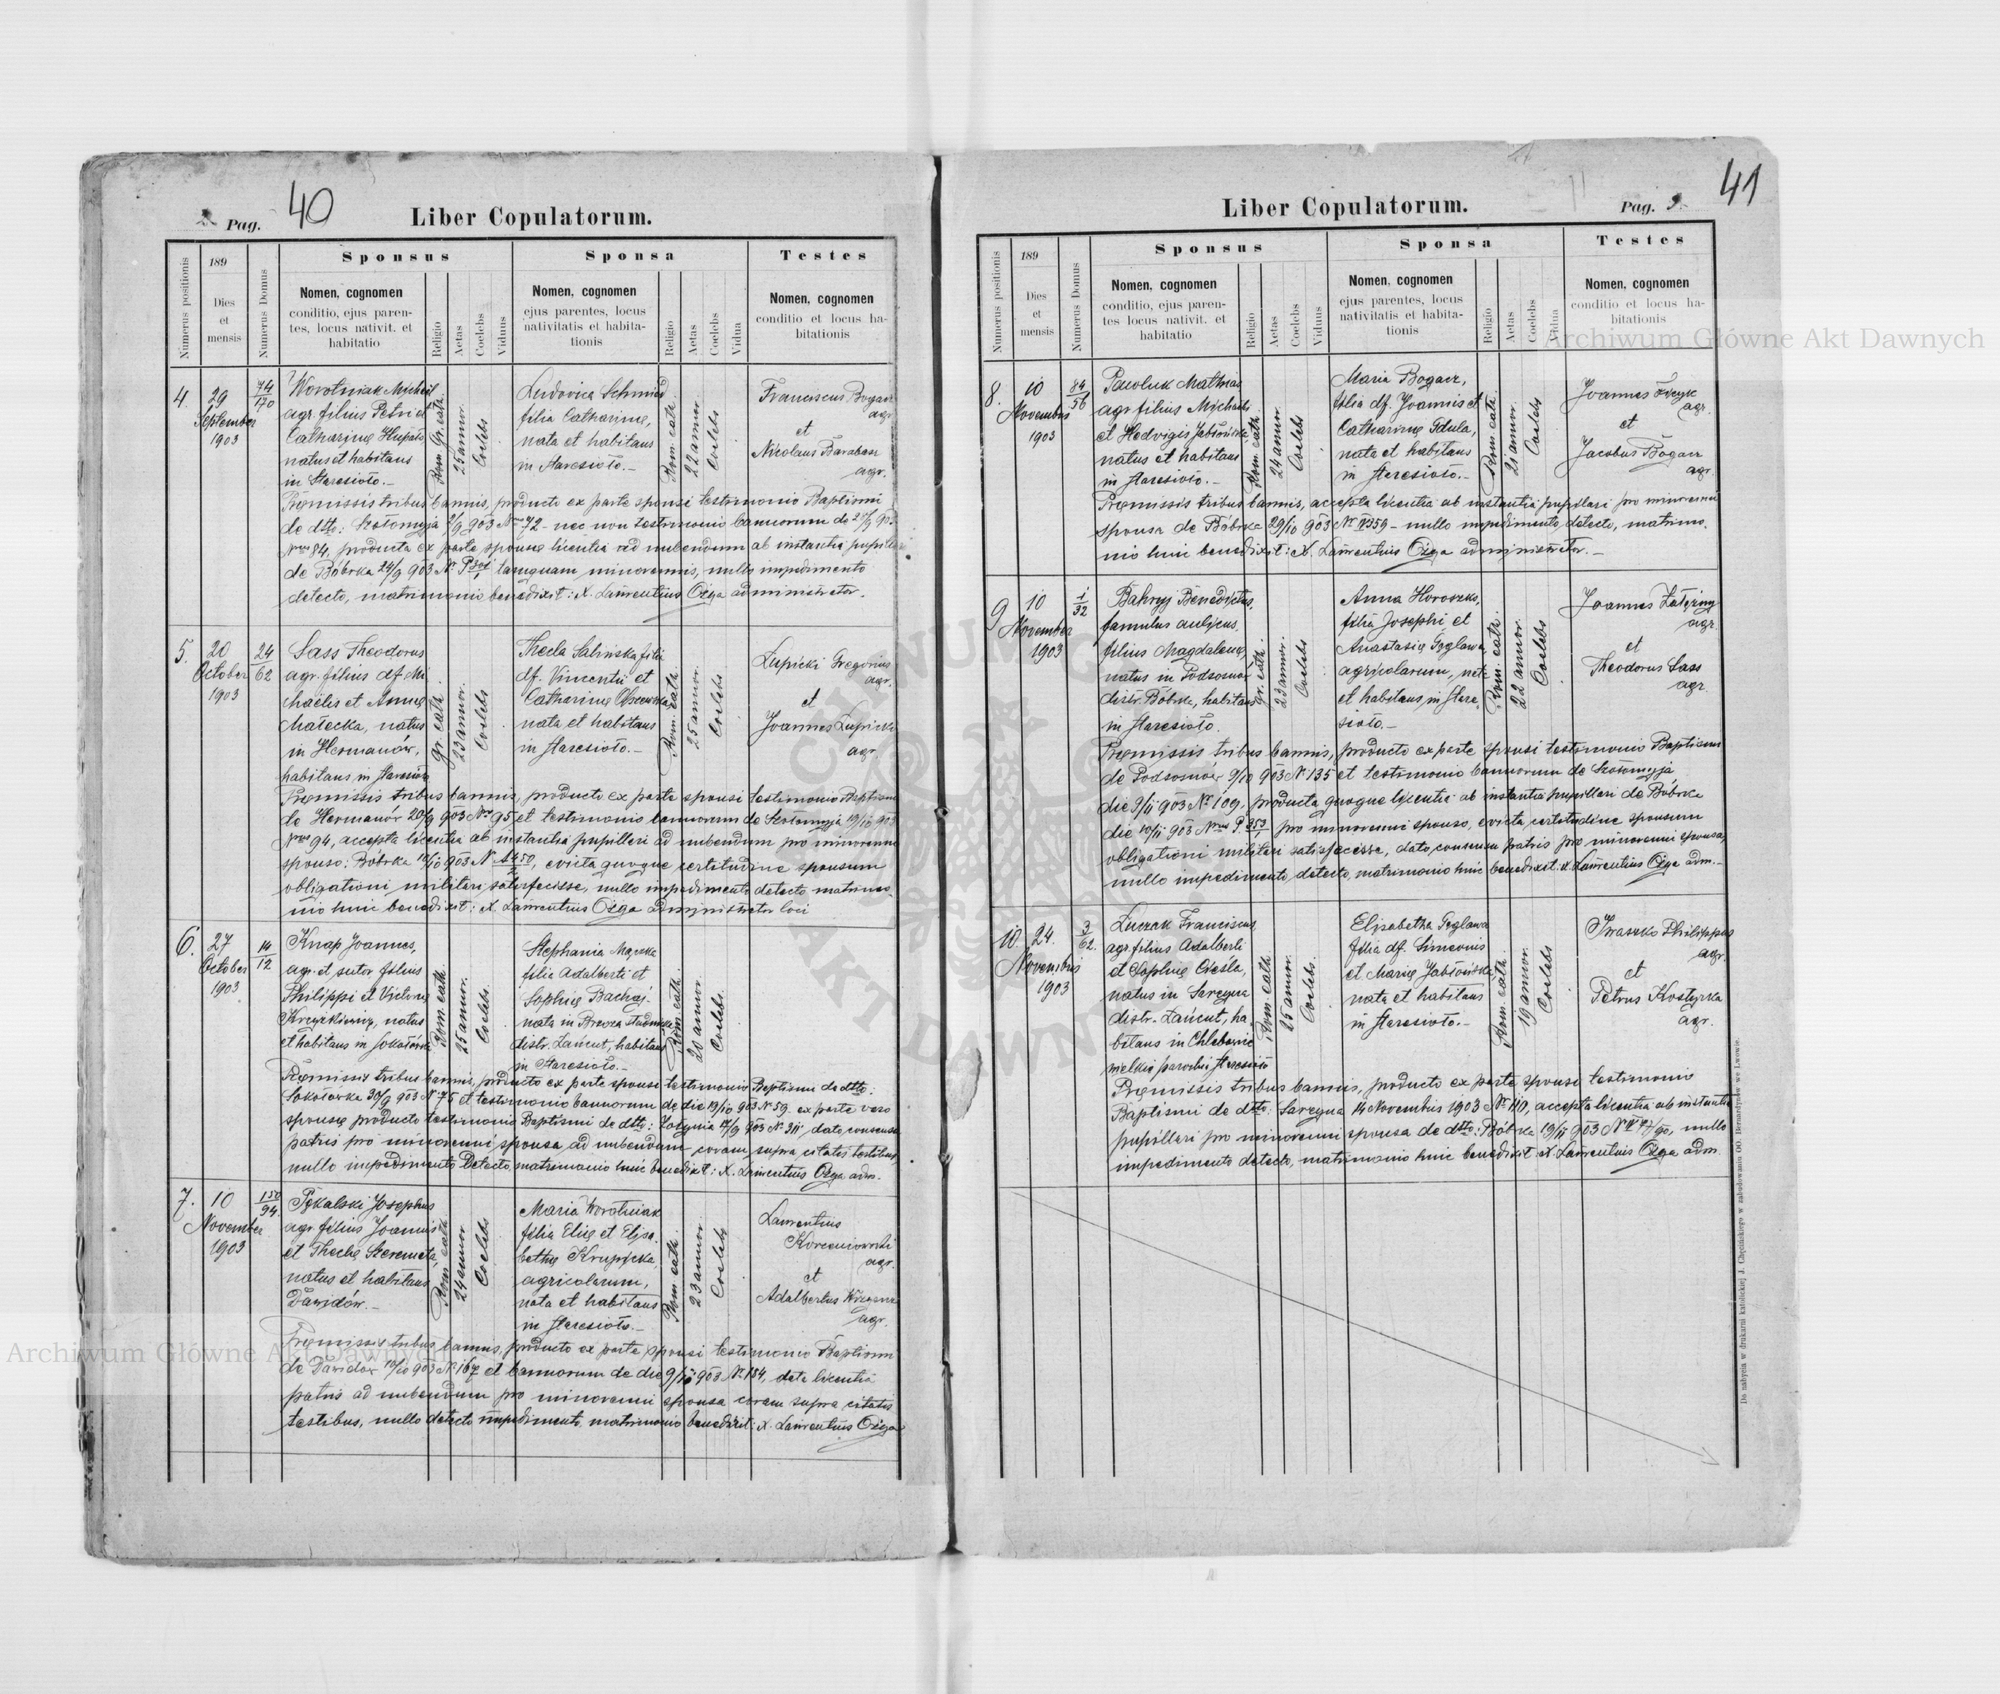 40
Pag.
Liber Copulatorum.
Numerus positionis
189
Dies
et
mensis
Numerus Domus
Sponsus
Nomen, cognomen
conditio, ejus paren-
tes, locus nativit. et
habitatio
Religio
Aetas
Coelebs
Viduus
Sponsa
Nomen, cognomen
ejus parentes, locus
nativitatis et habita-
tionis
Religio
Aetas
Coelebs
Vidua
Testes
Nomen, cognomen
conditio et locus ha-
bitationis
4.
29
September
1903
74/170
Worotniak Michaël
agr. filius Petri et
Catharinę
natus et habitans
in Staresioło.-
Rom. Gr. cath.
25 annor.
Coelebs
Ludovica Schmied
filia Catharinę,
nata et habitans
in Staresioło.-
Rom. cath.
22 annor.
Coelebs
Franciscus Bogacz
agr.
et
Nicolaus Baraban
agr.
Pręmissis tribus bannis, producto ex parte sponsi testimonio Baptismi
de dtto: 903 Nro 72 - nec non testimonio bannorum de
Nro 84, producta ex parte sponsę licentia ad nubendum ab instantia pupillari
de Bóbrka 24/9 903 tamquam minorennis, nullo impedimento
detecto, matrimonio benedixit: X. Laurentius Ożga administrator.
5.
20
October
1903
24/62
Sass Theodorus
agr. filius df. Mi-
chaëlis et Annę
Małecka, natus
in Hermanów,
habitans in Staresioło
gr. cath.
23 annor.
Coelebs
Thecla Salińska filia
df. Vincentii et
Catharinę
nata et habitans
in Staresioło.-
Rom. cath.
25 annor.
Coelebs
Łupicki Gregorius
agr.
et
Joannes Łupicki
agr.
Pręmissis tribus bannis, producto ex parte sponsi testimonio Baptismi
de Hermanów 20/9 903 Nro 95 et testimonio bannorum de 19/10 903
Nro 94, accepta licentia ab instantia pupillari ad nubendum pro minorenni
sponso: Bóbrka 903 evicta quoque certitudine sponsum
obligationi militari satisfecisse, nullo impedimento detecto matrimo-
nio huic benedixit: X. Laurentius Ożga administrator loci
6.
27
October
1903
14/12
Knap Joannes,
agr. et sutor filius
Philippi et Victorię
natus
et habitans in Sokołówka
Rom. cath.
25 annor.
Coelebs
Stephania
filia Adalberti et
Sophię Bachaj.
nata in
distr. Łańcut, habitans
in Staresioło.-
Rom. cath.
20 annor.
Coelebs.
Pręmissis tribus bannis, producto ex parte sponsi testimonio Baptismi de dtto:
Sokołówka 30/9 903 Nr 75 et testimonio bannorum de die 19/10 903 Nr 59. ex parte vero
sponsę producto testimonio Baptismi de dtto: Żołynia 17/9 903 Nr 311 dato consensu
patris pro minorenni sponsa ad nubendum coram supra citatis testibus
nullo impedimento detecto, matrimonio huic benedixit: X. Laurentius Ożga adm.
7.
10
November
1903
150/94
Pękalski Josephus
agr. filius Joannis
et Theclę Szeremeta,
natus et habitans
Dawidów.-
Rom. cath.
24 annor
Coelebs
Maria Worotniak
filia Elię et Elisa-
bethę Krupicka
agricolarum,
nata et habitans
in Staresioło.-
Rom. cath.
23 annor.
Coelebs
Laurentius
Korzeniowski
agr.
et
Adalbertus
agr.
Pręmissis tribus bannis, producto ex parte sponsi testimonio Baptismi
de Dawidów 903 Nr 167 et bannorum de die 903 Nr 184, data licentia
patris ad nubendum pro minorenni sponsa coram supra citatis
testibus, nullo detecto impedimento matrimonio benedixit: X. Laurentius Ożga
41
Liber Copulatorum.
Pag. 3.
Numerus positionis
189
Dies
et
mensis
Numerus Domus
Sponsus
Nomen, cognomen
conditio, ejus paren-
tes locus nativit. et
habitatio
Religio
Aetas
Coelebs
Viduus
Sponsa
Nomen, cognomen
ejus parentes, locus
nativitatis et habita-
tionis
Religio
Aetas
Coelebs
Vidua
Testes
Nomen, cognomen
conditio et locus ha-
bitationis
8.
10
Novembris
1903
84/56
Pawluk Mathias
agr. filius Michaëlis
et Hedvigis Jabłońska,
natus et habitans
in Staresioło.-
Rom. cath.
24 annor.
Coelebs
Maria Bogacz,
filia df. Joannis et
Catharinę Gdula,
nata et habitans
in Staresioło.-
Rom. cath.
21 annor.
Coelebs
Joannes
agr.
et
Jacobus Bogacz
agr.
Pręmissis tribus bannis, accepta licentia ab instantia pupillari pro minorenni
sponsa de Bóbrka 29/10 903 nullo impedimento detecto, matrimo-
nio huic benedixit: X. Laurentius Ożga administrator.-
9
10
November
1903
1/32
Bakryj Benedictus,
famulus aulicus,
filius Magdalenę,
natus in Podsosnów
distr. Bóbrka, habitans
in Staresioło
Gr. cath.
23 annor.
Coelebs
Anna Horoszko,
filia Josephi et
Anastasię
agricolarum, nata
et habitans in Stare-
sioło.-
Rom. cath.
22 annor.
Coelebs
Joannes
agr.
et
Theodorus Sass
agr.
Pręmissis tribus bannis, producto ex parte sponsi testimonio Baptismi
de Podsosnów 9/10 903 Nr 135 et testimonio bannorum de
die 9/11 903 Nr 109, producta quoque licentia ab instantia pupillari de Bóbrka
die 10/11 903 pro minorenni sponso, evicta certitudine sponsum
obligationi militari satisfecisse, dato consensu patris pro minorenni sponsa,
nullo impedimento detecto, matrimonio huic benedixit: X. Laurentius Ożga adm.-
10.
24.
Novembris
1903
3/62.
Łuczak Franciscus
agr. filius Adalberti
et Sophię Cieśla,
natus in Sarzyna
distr. Łańcut, ha-
bitans in Chlebowice
wielkie parochię Staresioło
Rom. cath.
25 annor.
Coelebs.
Elisabetha
filia df. Simeonis
et Marię Jabłońska,
nata et habitans
in Staresioło.-
Rom. cath.
19 annor.
Coelebs
Iwaszko Philippus
agr.
et
Petrus Kostyrka
agr.
Pręmissis tribus bannis, producto ex parte sponsi testimonio
Baptismi de dtto: Sarzyna 14 Novembris 1903 Nr 110, accepta licentia ab instantia
pupillari pro minorenni sponsa de dtto: Bóbrka 19/11 903 nullo
impedimento detecto, matrimonio huic benedixit X. Laurentius Ożga adm.
Do nabycia w drukarni katolickiej J. Chęcińskiego w zabudowaniu OO. Bernardynów we Lwowie.
Archiwum Główne Akt Dawnych
Archiwum Główne Akt Dawnych
ARCHIWUM GŁÓWNE AKT DAWNYCH